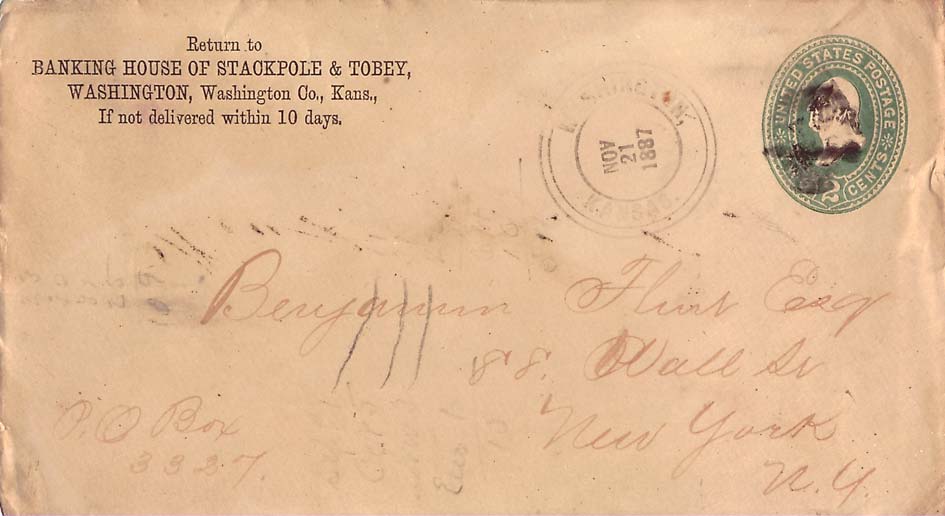 Return to
BANKING HOUSE OF STACKPOLE & TOBEY,
WASHINGTON, Washington Co., Kans.,
If not delivered within 10 days.
WASHINGTON,
NOV
21
1887
KANSAS.
UNITED STATES POSTAGE
2 CENTS
Benjamin Flint Esq
88. Wall St
New York
N.Y.
P.O Box
3327.